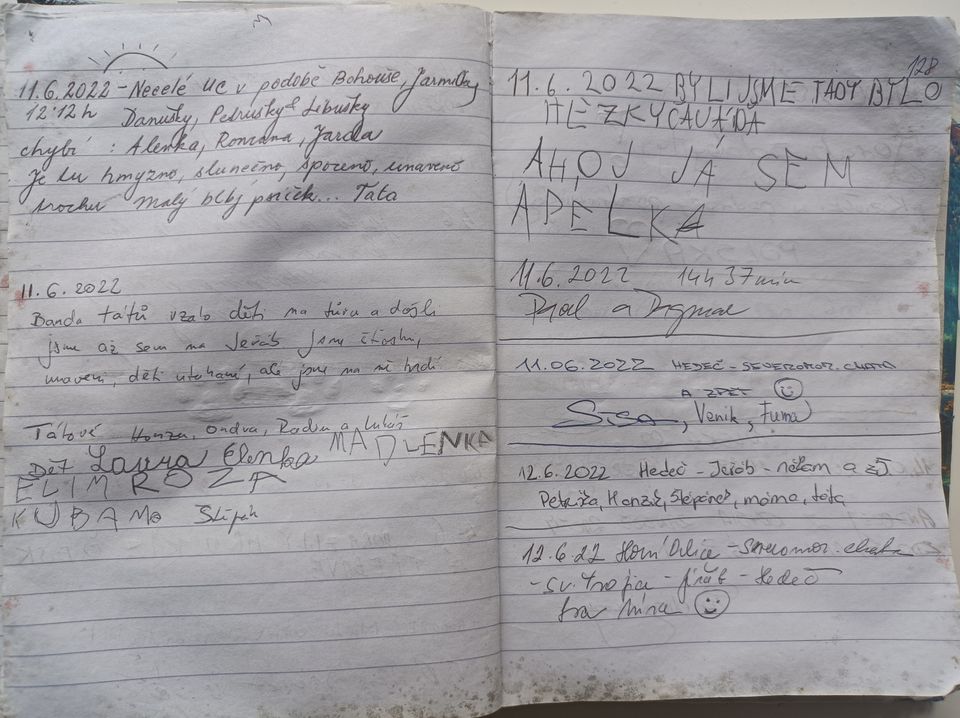 11.6.2022 – Necelé UC v podobě Bohouše, Jarmilky,
12:12h Danušky, Petrušky a Libušky
chybí : Alenka, Romana, Jarda
Je tu hmyzno, slunečno, spoceno, unaveno
trochu malý blbý poníček... Táta
11.6.2022
Banda tátů vzala děti na túru a došli
jsme až sem na Jeřáb jsme šťastní,
unavení, děti utahaní, ale jsme na ně hrdí
Tátové Honza, Ondra, Radim a Lukáš
Dět Laura Elenka MADLENKA
ELIM ROZA
KUBA Štěpán
128
11.6.2022 BYLI JSME TADY BYLO
HEZKY
AHOJ JÁ SEM
ADELKA
11.6.2022 14h 37min
a Dagmar
11.06.2022 HEDEČ - SEVEROMOR. CHATA
A ZPĚT
SISA, Venik, Fuma
12.6.2022 Hedeč - Jeřáb - nátam a zpět
Petruška, Honzík, Štěpánek, máma, táta
12.6.22 Horní Orlice - Severomor. chata
- sv. trojice - Jeřáb - Hedeč
Míra